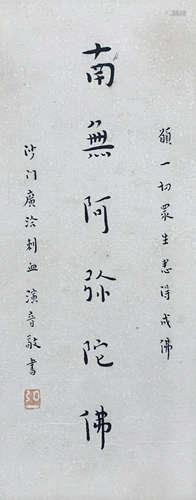 願一切眾生悉得成佛
南無阿彌陀佛
沙門廣洽刺血 演音敬書